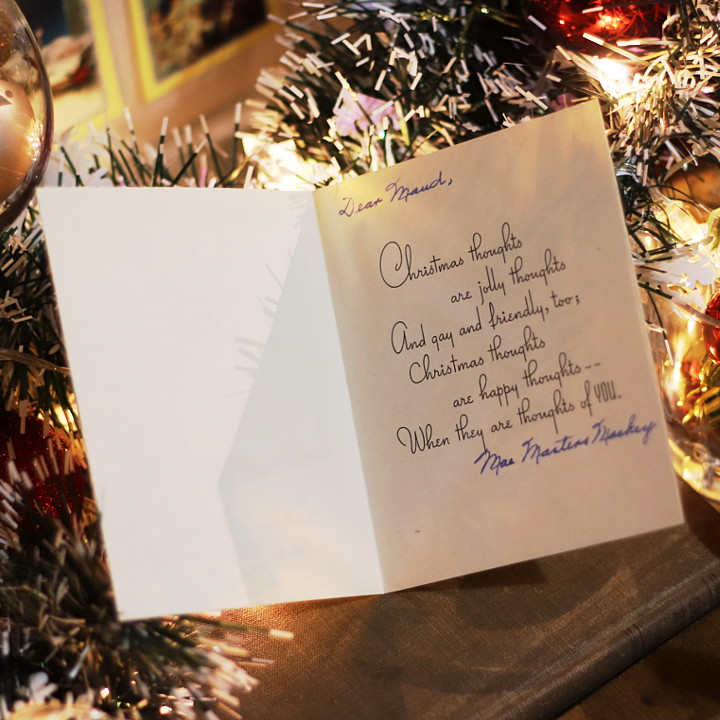 Dear Maud,
Christmas thoughts
are jolly thoughts
And gay and friendly, too;
Christmas thoughts
are happy thoughts--
When they are thoughts of YOU.
Mae Masters Mackey